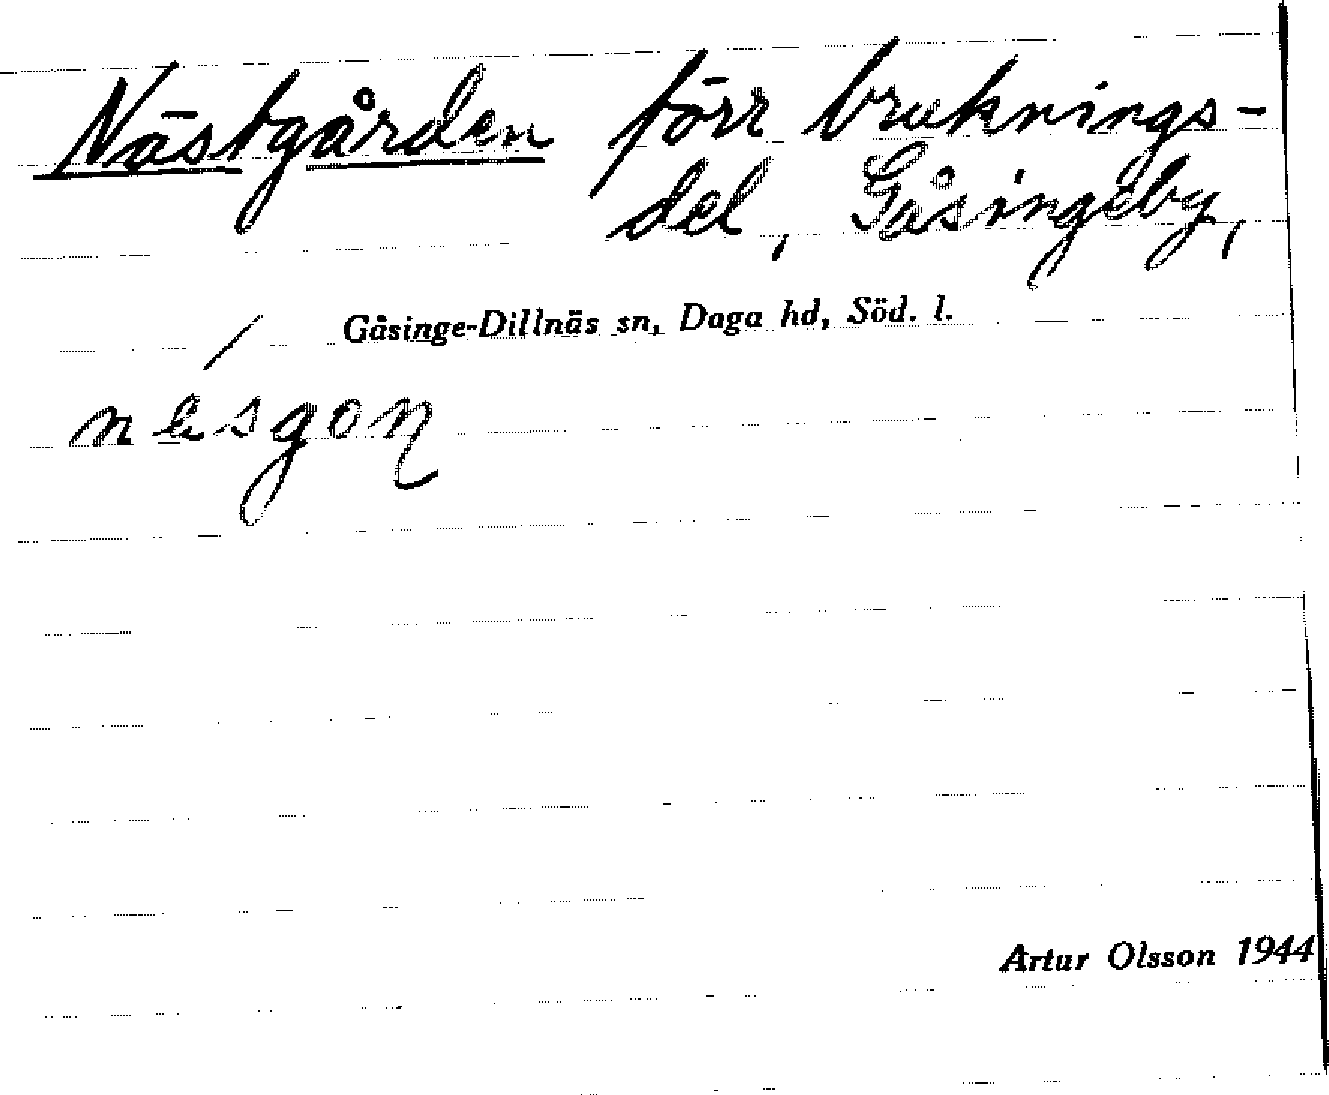 Nästgården förr bruknings-
del, Gåsingeby,
Gåsinge-Dillnäs sn, Daga hd, Söd. l.
Artur Olsson 1944